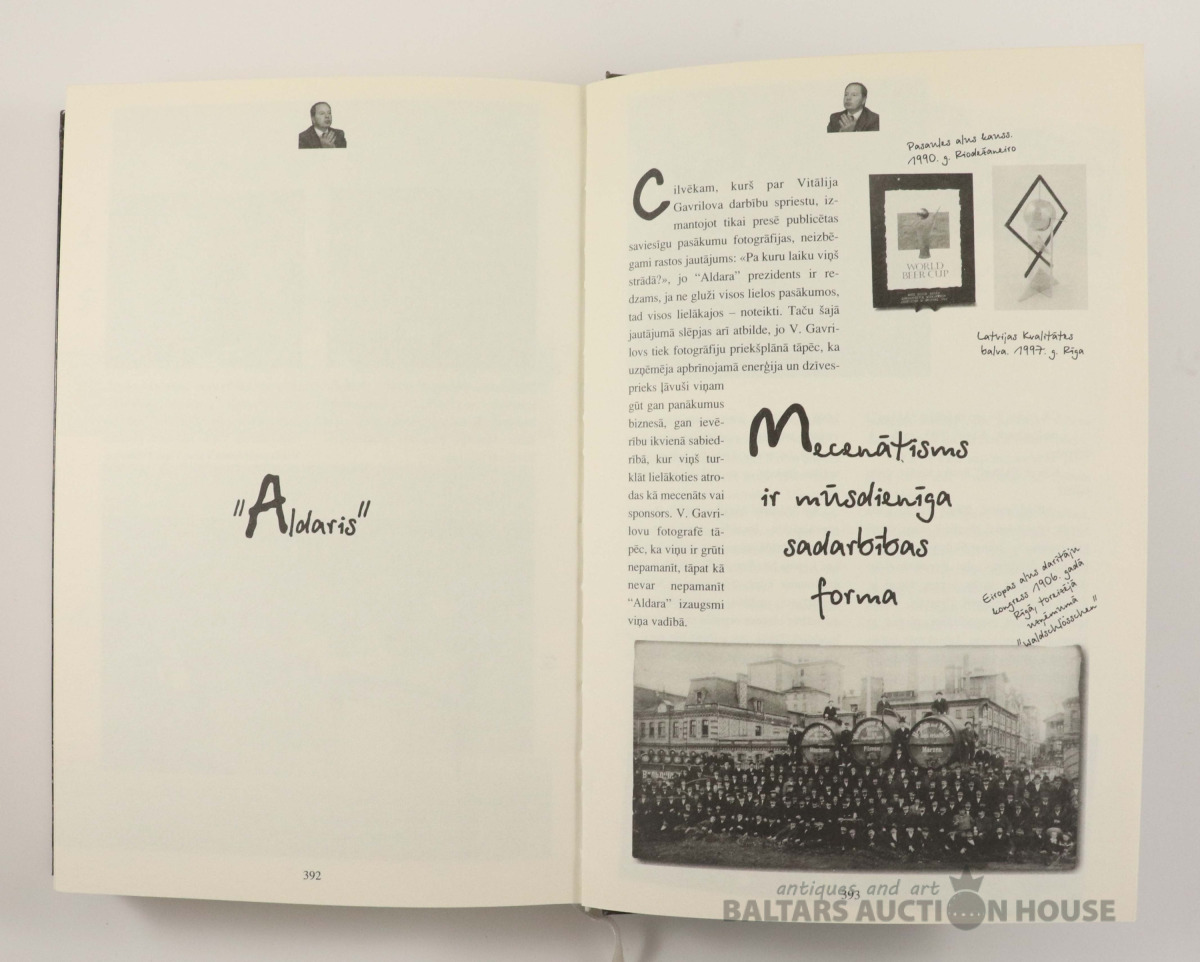 "Aldaris"
392
Pasaules alus kauss.
1990. g. Riodežaneiro
Cilvēkam, kurš par Vitālija
Gavrilova darbību spriestu, iz-
mantojot tikai presē publicētas
saviesīgu pasākumu fotogrāfijas, neizbē-
gami rastos jautājums: «Pa kuru laiku viņš
strādā?», jo "Aldara" prezidents ir re-
dzams, ja ne gluži visos lielos pasākumos,
tad visos lielākajos – noteikti. Taču šajā
jautājumā slēpjas arī atbilde, jo V. Gavri-
lovs tiek fotogrāfiju priekšplānā tāpēc, ka
uzņēmēja apbrīnojamā enerģija un dzīves-
prieks ļāvuši viņam
gūt gan panākumus
biznesā, gan ievē-
rību ikvienā sabied-
rībā, kur viņš tur-
klāt lielākoties atro-
das kā mecenāts vai
sponsors. V. Gavri-
lovu fotografē tā-
pēc, ka viņu ir grūti
nepamanīt, tāpat kā
nevar nepamanīt
"Aldara" izaugsmi
viņa vadībā.
WORLD
BEER CUP
Latvijas Kvalitātes
balva. 1997. g. Rīga
Mecenātisms
ir mūsdienīga
sadarbības
forma
Eiropas alus darītāju
kongress 1906. gadā
Rīgā, toreizējā
uzņēmumā
"Waldschlösschen"
393
antiques and art
BALTARS AUCTION HOUSE